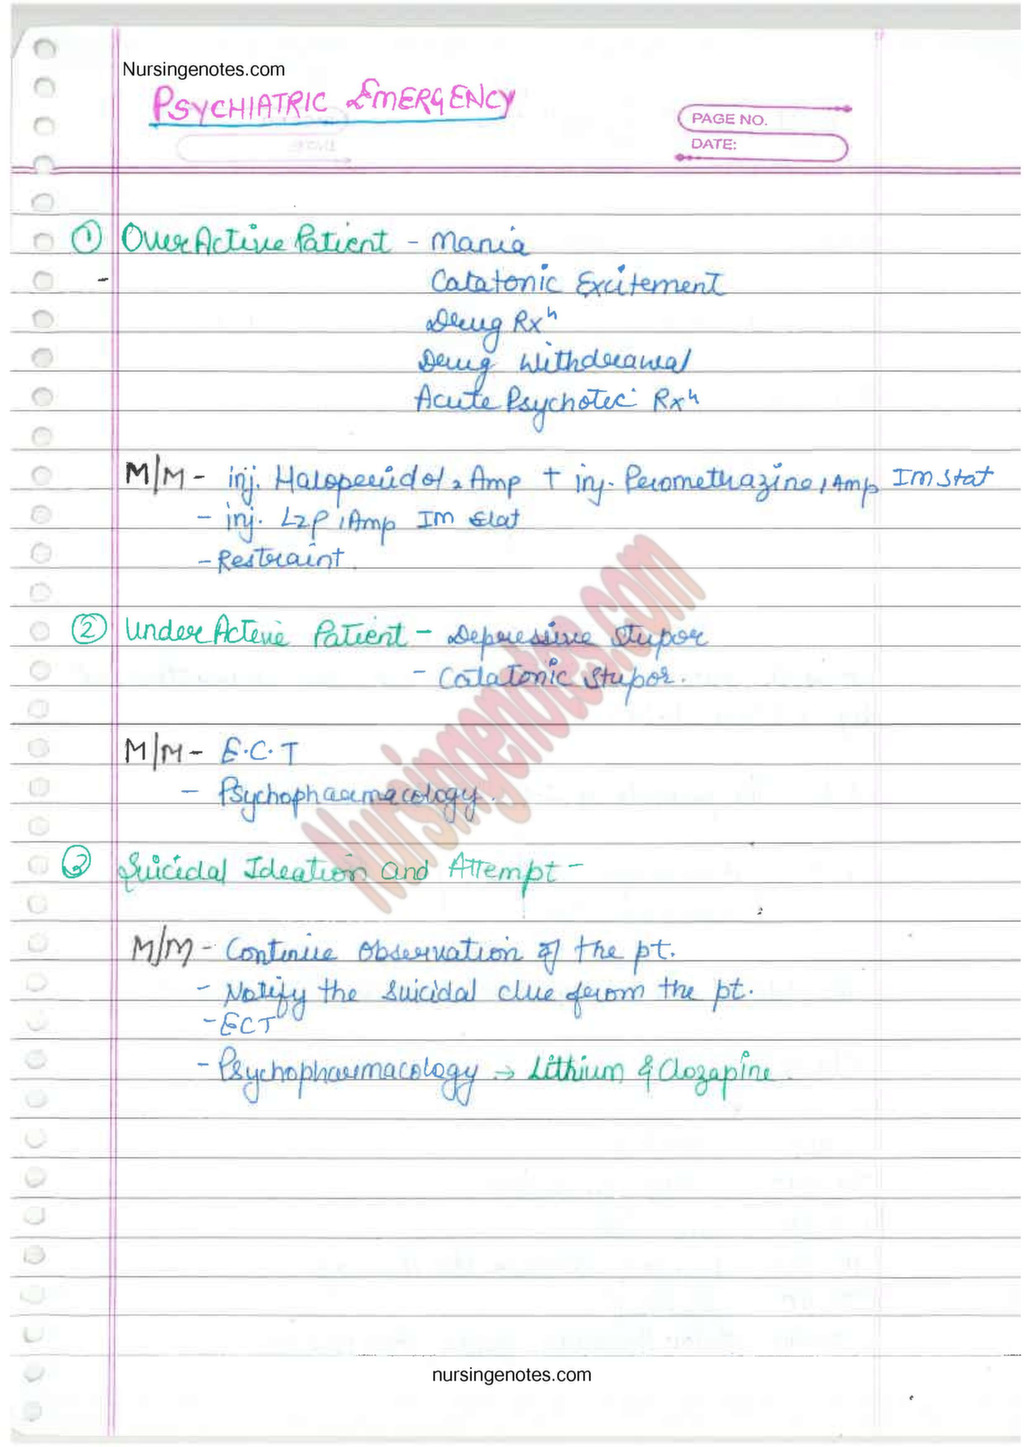 Nursingenotes.com
PSYCHIATRIC EMERGENCY
PAGE NO.
DATE:
① OverActive Patient - Mania
- Catatonic Excitement
Drug Rxⁿ
Drug Withdrawal
Acute Psychotic Rxⁿ
M/M - inj. Haloperidol 2 Amp + inj. Promethazine 1 Amp Im Stat
- inj. LZP 1 Amp Im Stat
- Restraint.
② Under Active Patient - Depressive Stupor
- Catatonic Stupor.
M/M - E.C.T
- Psychopharmacology.
③ Suicidal Ideation and Attempt -
M/M - Continue Observation of the pt.
- Notify the suicidal clue from the pt.
- ECT
- Psychopharmacology → Lithium & Clozapine.
Nursingenotes.com
nursingenotes.com